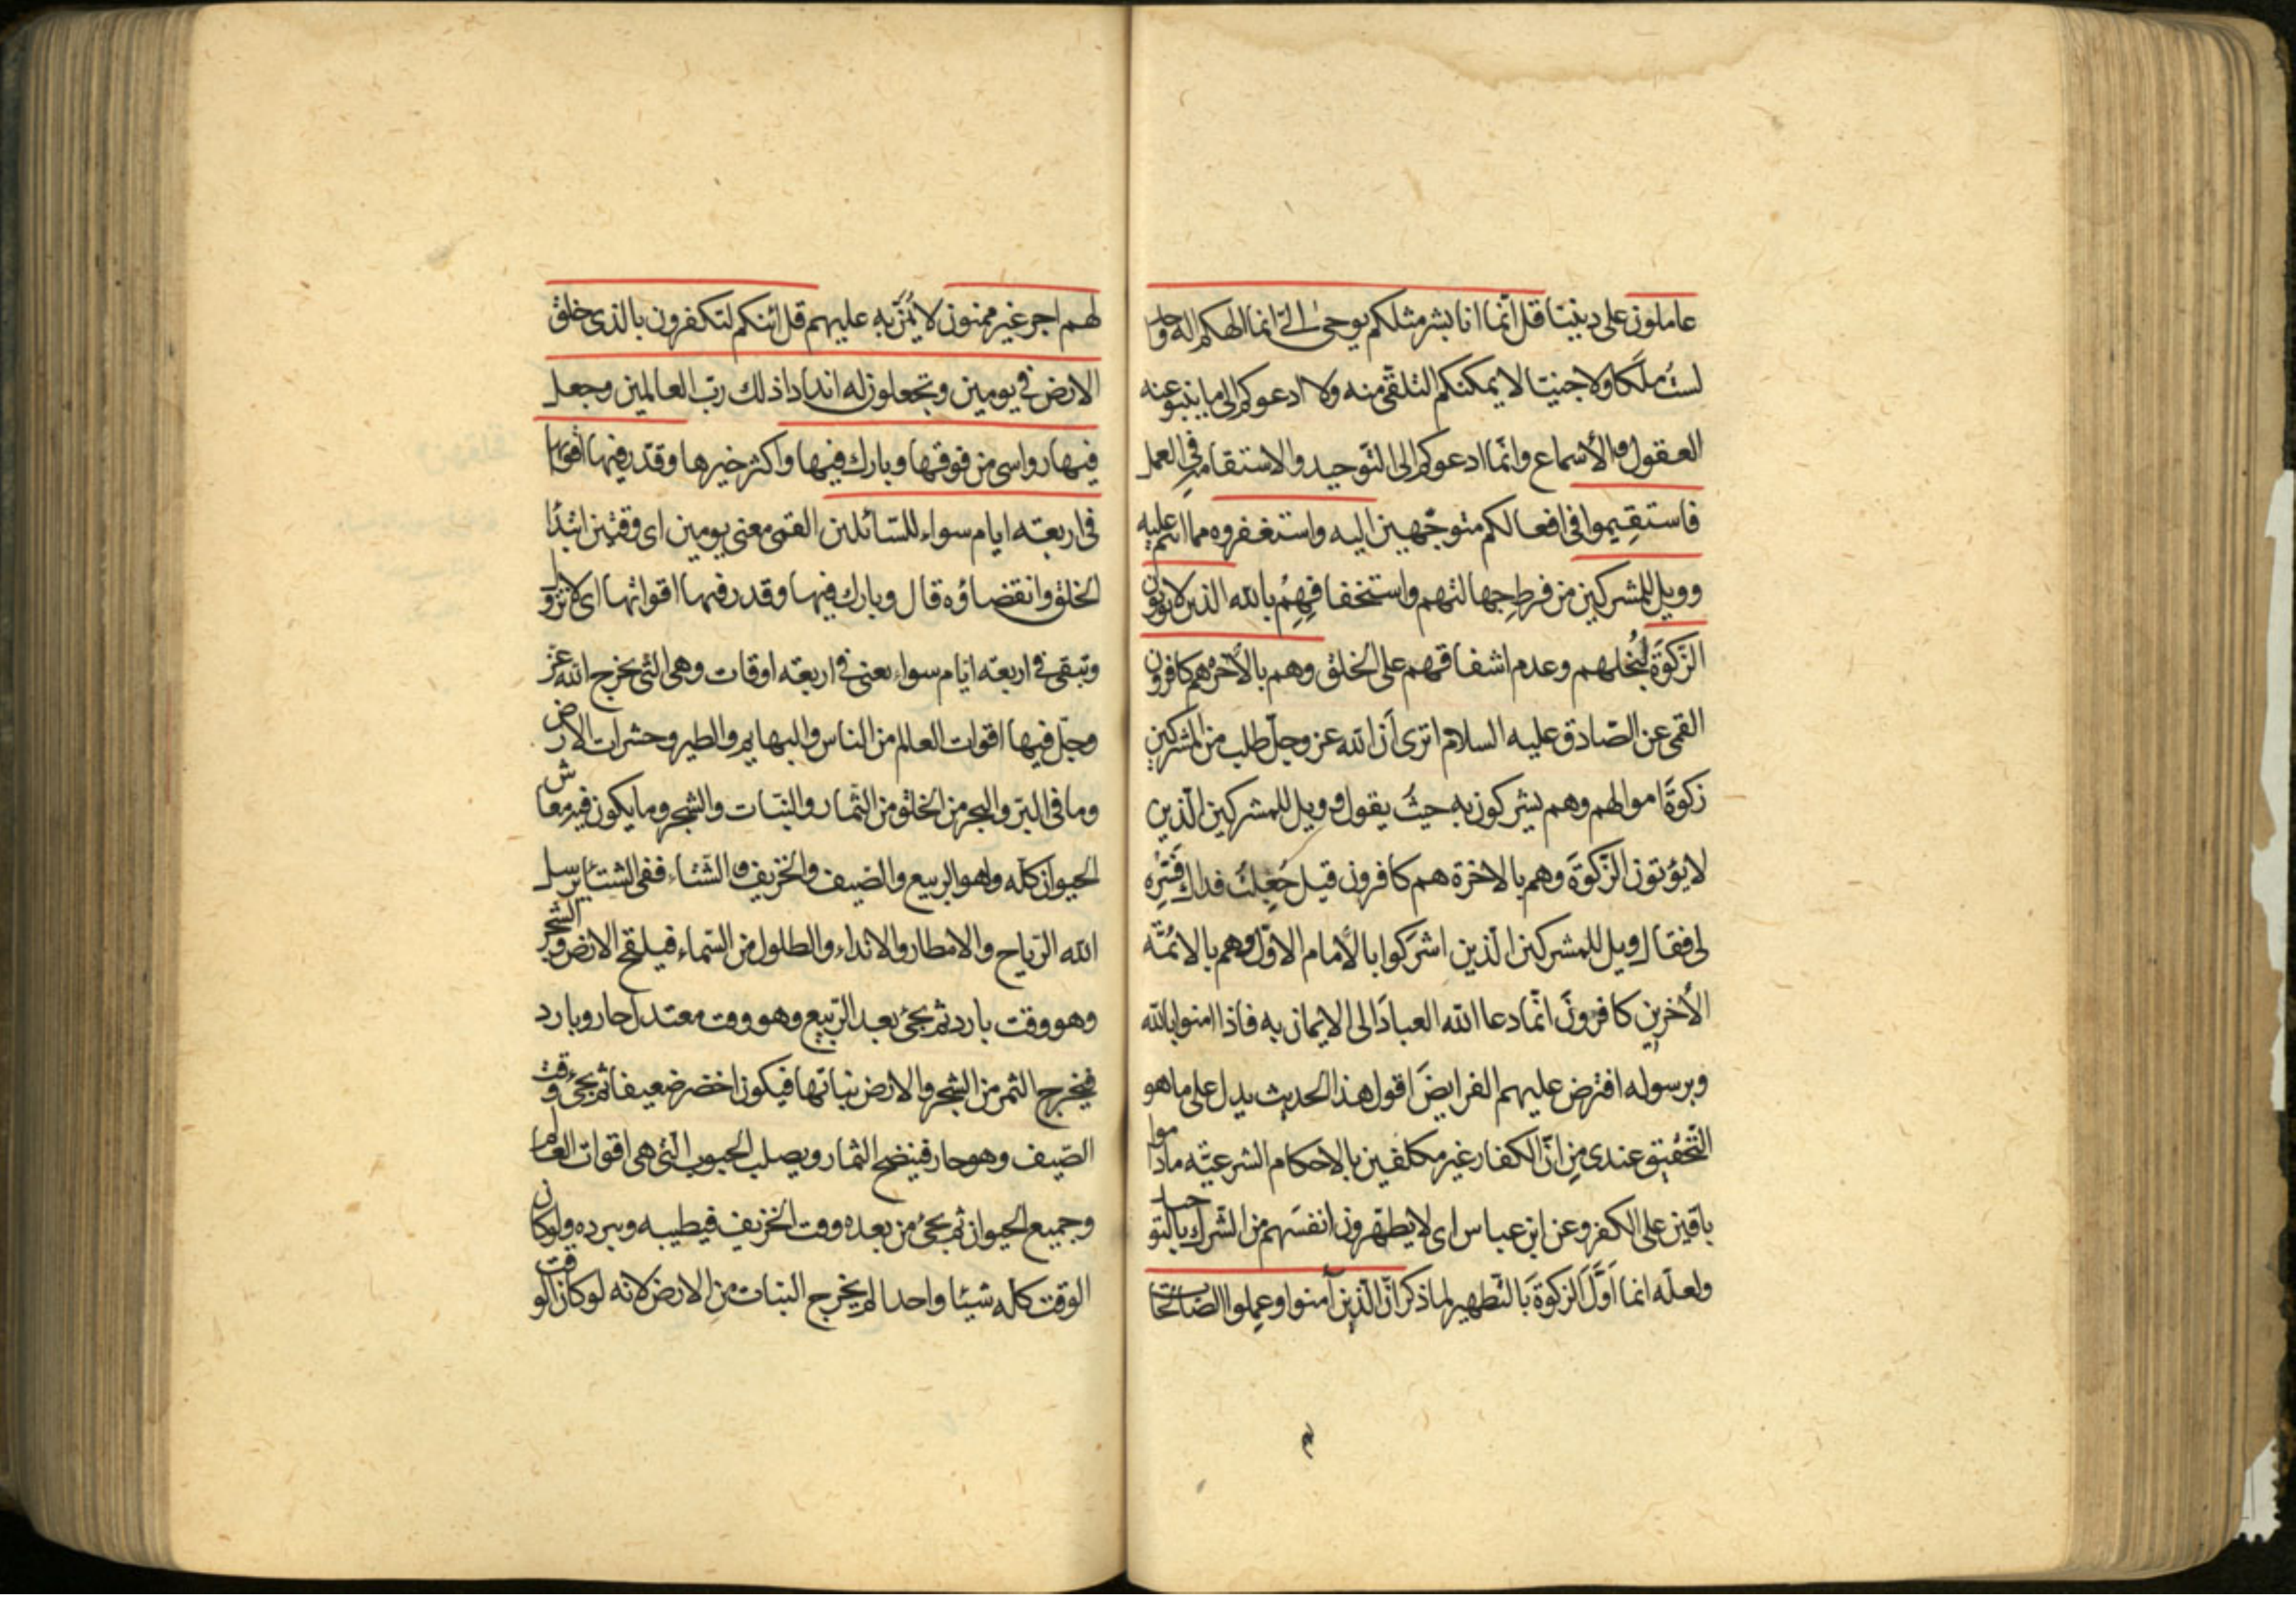 عاملون على ديننا قل انّما انا بشر مثلكم يوحى الىّ انما الهكم اله واحد
لستُ ملَكا ولا جنيّا لا يمكنكم التلقّى منه ولا ادعوكم الى ما ينبو عنه
العقول والأسماع وانّما ادعوكم الى التوحيد والاستقامة فى العمل
فاستقيموا فى افعالكم متوجّهين اليه واستغفروه مما انتم عليه
وويل للمشركين من فرط جهالتهم واستخفافهم بالله الذين لا يؤتون
الزكوة لبُخلهم وعدم اشفاقهم على الخلق وهم بالأخرة هم كافرون
القمى عن الصّادق عليه السلام اترى أن الله عز وجل طلب من المشركين
زكوة اموالهم وهم يشركون به حيث يقول وويل للمشركين الّذين
لا يؤتون الزكوة وهم بالاخرة هم كافرون قيل جُعِلتُ فداك فسّره
لى فقال ويل للمشركين الّذين اشركوا بالأمام الاوّل وهم بالائمّة
الأخرين كافرون انّما دعا الله العباد الى الايمان به فاذا امنوا بالله
وبرسوله افترض عليهم الفرايض اقول هذا الحديث يدل على ما هو
التّحقيق عندى من انّ الكفار غير مكلفين بالاحكام الشرعيّة ما داموا
باقين على الكفر وعن ابن عباس اى لا يطهّرون انفسَهم من الشّرك بالتوحيد
ولعلّه انما اوّل الزكوة بالتطهير لما ذكر انّ الّذين آمنوا وعملوا الصّالحات
لهم اجر غير ممنون لا يُمَنّ به عليهم قل ائنكم لتكفرون بالذى خلق
الارض فى يومين وتجعلون له اندادا ذلك ربّ العالمين وجعل
فيها رواسى من فوقها وبارك فيها واكثر خيرها وقدّر فيها اقواتها
فى اربعة ايام سواء للسّائلين القمى معنى يومين اى وقتين ابتداء
الخلق وانقضاؤه قال وبارك فيها وقدر فيها اقواتها اى لا تزول
وتبقى فى اربعة ايّام سواء يعنى فى اربعة اوقات وهى التى يخرج الله عز
وجل فيها اقوات العالم من الناس والبهايم والطير وحشرات الارض
وما فى البرّ والبحر من الخلق من الثمار والنبّات والشجر وما يكون فيه معاش
الحيوان كلّه وهو الربيع والصّيف والخريف والشتاء ففى الشتاء يرسل
الله الرّياح والامطار والانداء والطلول من السّماء فيلقح الارض والشجر
وهو وقت بارد ثم يجئ بعد الرّبيع وهو وقت معتدل حار وبارد
فيخرج الثمر من الشجر والارض نباتها فيكون اخضر ضعيفا ثم يجئ وقت
الصّيف وهو حار فينضج الثمار ويصلب الحبوب الّتى هى اقوات العالم
وجميع الحيوان ثم يجئ من بعده وقت الخريف فيطيبه ويبرده ولو كان
الوقت كلّه شيئا واحدا لم يخرج النبات من الارض لانه لو كان الوقت